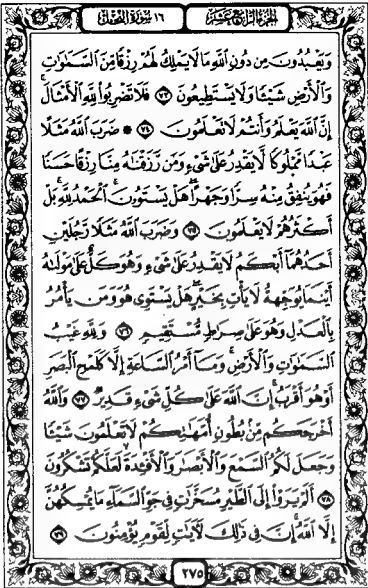 الجزء الرابع عشر
١٦ سورة النحل
وَيَعْبُدُونَ مِن دُونِ ٱللَّهِ مَا لَا يَمْلِكُ لَهُمْ رِزْقًا مِّنَ ٱلسَّمَٰوَٰتِ
وَٱلْأَرْضِ شَيْـًٔا وَلَا يَسْتَطِيعُونَ ٧٣ فَلَا تَضْرِبُوا۟ لِلَّهِ ٱلْأَمْثَالَ
إِنَّ ٱللَّهَ يَعْلَمُ وَأَنتُمْ لَا تَعْلَمُونَ ٧٤ * ضَرَبَ ٱللَّهُ مَثَلًا
عَبْدًا مَّمْلُوكًا لَّا يَقْدِرُ عَلَىٰ شَىْءٍ وَمَن رَّزَقْنَٰهُ مِنَّا رِزْقًا حَسَنًا
فَهُوَ يُنفِقُ مِنْهُ سِرًّا وَجَهْرًا هَلْ يَسْتَوُۥنَ ٱلْحَمْدُ لِلَّهِ بَلْ
أَكْثَرُهُمْ لَا يَعْلَمُونَ ٧٥ وَضَرَبَ ٱللَّهُ مَثَلًا رَّجُلَيْنِ
أَحَدُهُمَآ أَبْكَمُ لَا يَقْدِرُ عَلَىٰ شَىْءٍ وَهُوَ كَلٌّ عَلَىٰ مَوْلَىٰهُ
أَيْنَمَا يُوَجِّههُّ لَا يَأْتِ بِخَيْرٍ هَلْ يَسْتَوِى هُوَ وَمَن يَأْمُرُ
بِٱلْعَدْلِ وَهُوَ عَلَىٰ صِرَٰطٍ مُّسْتَقِيمٍ ٧٦ وَلِلَّهِ غَيْبُ
ٱلسَّمَٰوَٰتِ وَٱلْأَرْضِ وَمَآ أَمْرُ ٱلسَّاعَةِ إِلَّا كَلَمْحِ ٱلْبَصَرِ
أَوْ هُوَ أَقْرَبُ إِنَّ ٱللَّهَ عَلَىٰ كُلِّ شَىْءٍ قَدِيرٌ ٧٧ وَٱللَّهُ
أَخْرَجَكُم مِّنۢ بُطُونِ أُمَّهَٰتِكُمْ لَا تَعْلَمُونَ شَيْـًٔا
وَجَعَلَ لَكُمُ ٱلسَّمْعَ وَٱلْأَبْصَٰرَ وَٱلْأَفْـِٔدَةَ لَعَلَّكُمْ تَشْكُرُونَ
٧٨ أَلَمْ يَرَوْا۟ إِلَى ٱلطَّيْرِ مُسَخَّرَٰتٍ فِى جَوِّ ٱلسَّمَآءِ مَا يُمْسِكُهُنَّ
إِلَّا ٱللَّهُ إِنَّ فِى ذَٰلِكَ لَءَايَٰتٍ لِّقَوْمٍ يُؤْمِنُونَ ٧٩
٢٧٥